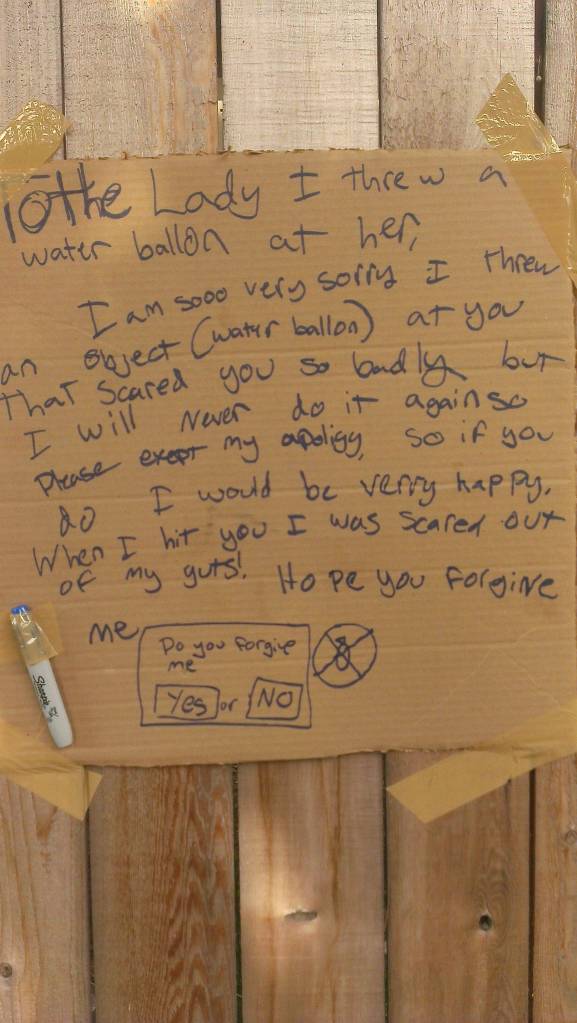 To the Lady I threw a
water ballon at her,
I am sooo very sorry I threw
an object (water ballon) at you
that scared you so badly but
I will never do it again so
Please exept my apoligy, so if you
do I would be verry happy.
When I hit you I was scared out
of my guts! Hope you forgive
me
Do you forgive
me
Yes or NO
Sharpie